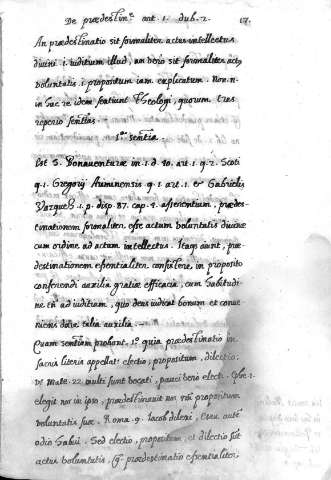 De prædestinᵉ. art. 1. dub. 2. 17.
An prædestinatio sit formaliter actus intellectus
divini .i. iuditium illud, an verò sit formaliter actꝰ
voluntatis .i. propositum iam explicatum. Non.n.
in hac re idem sentiunt Theologi, quorum tres
reperio sentẽtias.
1ᵃ sentẽtia
Est S. Bonaventuræ in .1. d. 40. art. 1. q. 2. Scoti
q. 1. Gregorij Ariminensis q. 1. art. 1. & Gabrielis
Vazquez 1. p. disp. 87. cap. asserentium, prædes-
tinationem formaliter esse actum voluntatis divinæ
cum ordine ad actum intellectus. Itaq; aiunt, præ-
destinationem essentialiter consistere in proposito
conferendi auxilia gratiæ efficacia, cum habitudi-
ne tñ ad iuditium, quo deus iudicat bonum et conve-
niens dare talia auxilia.
Quam sentiam probant. 1º quia prædestinatio in
sacris literis appellatʳ electio, propositum, dilectio:
ut Mate. 22. multi sunt vocati, pauci verò electi.
elegit nos in ipso, prædestinavit nos propositum
voluntatis suæ. Roma. 9. Iacob dilexi, Esau autẽ
odio habui. Sed electio, propositum, et dilectio sũt
actus voluntatis, prædestinatio essentialiter